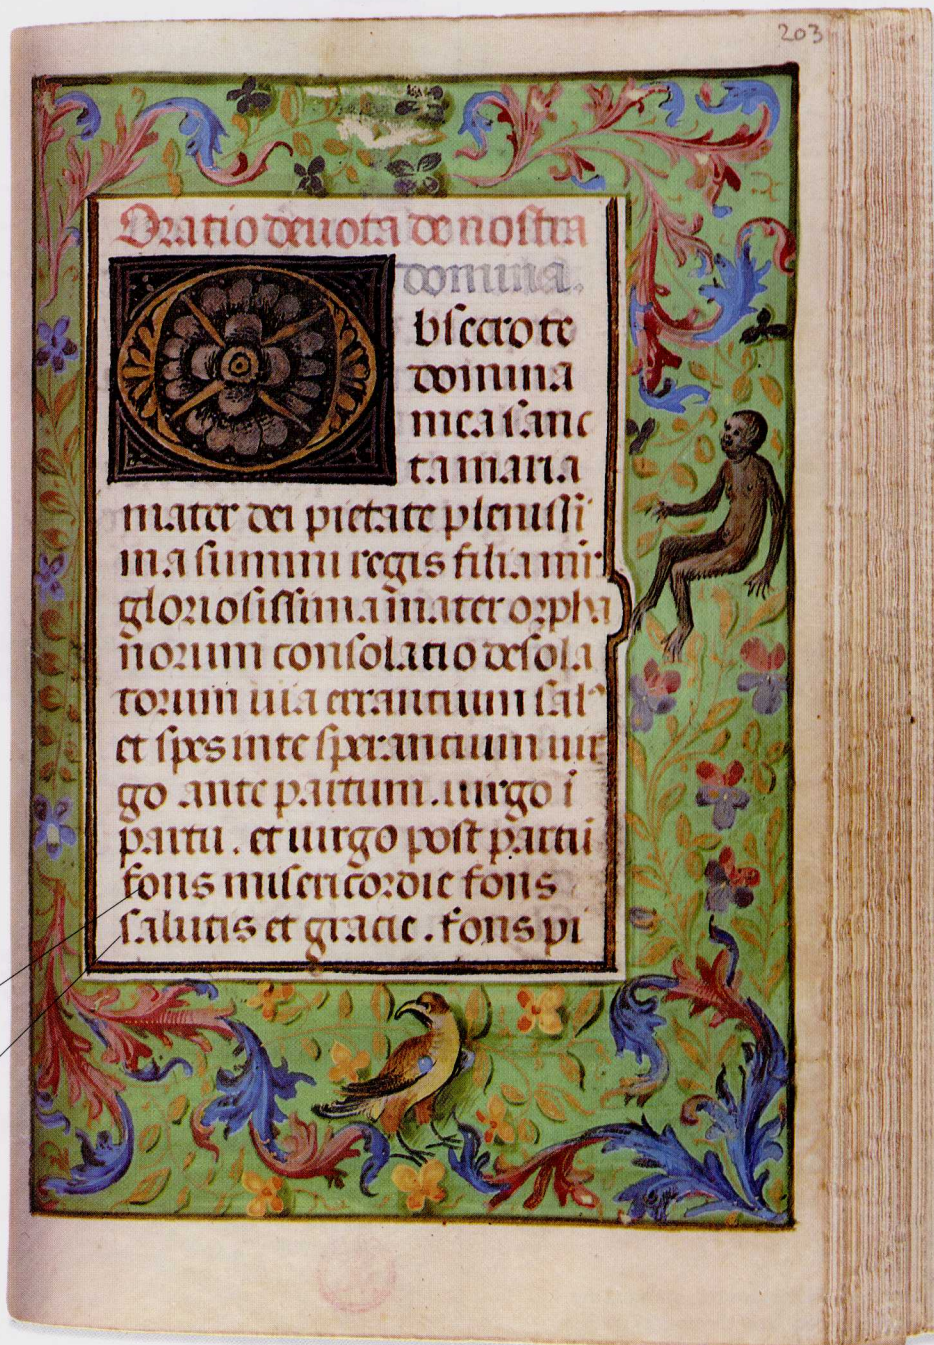 203
Oratio deuota de nostra
domina.
bsecro te
domina
mea sanc
ta maria
mater dei pietate plenissi
ma summi regis filia mr̄
gloriosissima mater orpha
norum consolatio desola
torum uia errantium sal᾽
et spes in te sperantium uir
go ante partum. uirgo ī
partu. et uirgo post partū
fons misericordie fons
salutis et gracie. fons pi